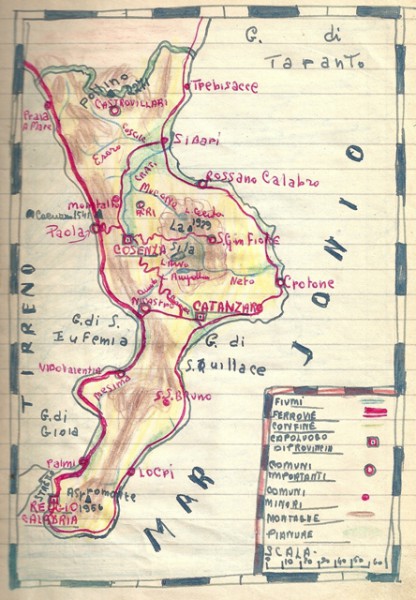 G. di
Taranto
Pollino
2271
Trebisacce
CASTROVILLARI
Praia
a Mare
Coscile
Esaro
Sibari
CRATI
Rossano Calabro
Mucone
L. Cecita
Montalto
ACRI
1929
Cocuzzo 1541
Paola
La
Sila
S.G. in Fiore
COSENZA
L. Arvo
L. Ampollino
Neto
Crotone
Nicastro
CATANZARO
JONIO
TIRRENO
G. di S.
Eufemia
G. di
S.Quillace
Vibo Valentia
Mesima
S.S. Bruno
G. di
Gioia
Palmi
Locri
STRETTO
Aspromonte
1956
REGGIO
CALABRIA
MAR
FIUMI
FERROVIE
CONFINE
CAPOLUOGO
DI PROVINCIA
COMUNI
IMPORTANTI
COMUNI
MINORI
MONTAGNE
PIANURE
SCALA-
0 10 20 30 40 50 60